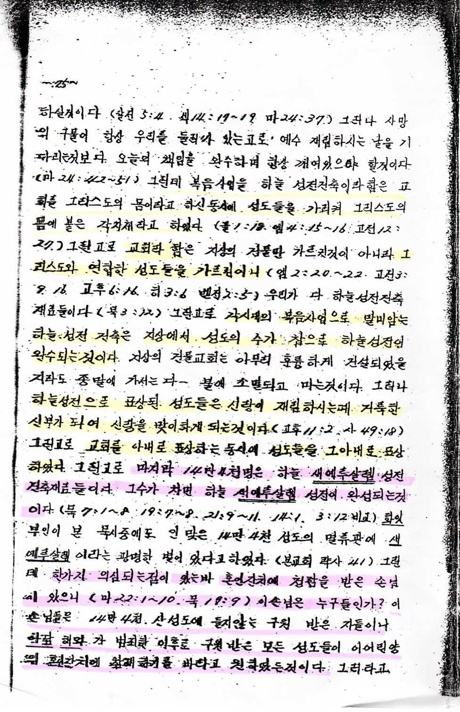 -25-
하실것이다 (살전 5:4. 19~19 마24:37.) 그러나 사망
의 구름이 항상 우리를 둘러싸 있는고로 예수 재림하시는 날을 기
다리는것보다 오늘의 책임을 완수하며 항상 깨여있으야 할것이다
(마 24:42~51) 그런데 복음사업을 하늘 성전건축이라함은 교
회를 그리스도의 몸이라고 하신동시에 성도들을 가리켜 그리스도의
몸에 붙은 각지체라고 하였다 (골 1:18 엡 4:15~16 고전12:
27.) 그런고로 교회라 함은 지상의 건물만 가르친것이 아니라 그
리스도와 연합한 성도들을 가르친이니 (엡 2:20~22. 고전3:
9. 16. 고후 6:16. 히 3:6 벧전 2:5) 우리가 다 하늘성전건축
재료들이다 (묵 3:12) 그런고로 지상의 복음사업으로 말미암는
하늘성전 건축은 지상에서 성도의 수가 참으로 하늘성전이
완수되는것이다 지상의 건물교회는 아무리 훌륭하게 건설되었을
지라도 종말에 가서는 다 - 불에 소멸되고 마는것이다 그러나
하늘성전으로 표상된 성도들은 신랑이 재림하시는때 거룩한
신부가 되여 신랑을 맞이하게 되는것이다 (고후11:2. 사 49:18)
그런고로 교회를 아내로 표상하는 동시에 성도들을 그아내로 표상
하였다 그런고로 마지막 14만4천명은 하늘 새예루살렘 성전
건축재료들이다 그수가 차면 하늘 새예루살렘 성전이 완성되는것
이다 (묵 7:1~8. 19:7~8. 21:9~11. 14:1. 3:12 비교) 화잇
부인이 본 묵시중에도 인 맞은 14만4천 성도의 면류관에 새
예루살렘 이라는 광명한 빛이 있다고 하였다 (본교회 41) 그런
데 한가지 의심되는점이 있는바 혼인잔치에 청함을 받은 손님
이 있으니 (마 22:1~10. 묵 19:9) 이손님은 누구들인가? 이
손님들은 14만4천 산성도에 들지않는 구원 받은 자들이니
아담 해와 가 범죄한 이후로 구원받은 모든 성도들이 이어린양
의 혼인잔치에 참예하기를 바라고 있든것이다 그러라고